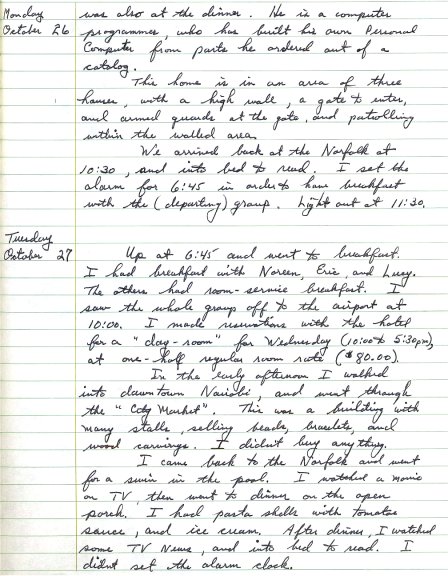 Monday was also at the dinner. He is a computer
October 26 programmer, who has built his own Personal
Computer from parts he ordered out of a
catalog.
This home is in an area of three
houses, with a high wall, a gate to enter,
and armed guards at the gate, and patrolling
within the walled area.
We arrived back at the Norfolk at
10:30, and into bed to read. I set the
alarm for 6:45 in order to have breakfast
with the (departing) group. Light out at 11:30.
Tuesday
October 27 Up at 6:45 and went to breakfast.
I had breakfast with Noreen, Eric, and Lucy.
The others had room-service breakfast. I
saw the whole group off to the airport at
10:00. I made reservations with the hotel
for a "day-room" for Wednesday (10:00 to 5:30pm),
at one-half regular room rate ($80.00).
In the early afternoon I walked
into downtown Nairobi, and went through
the "City Market". This was a building with
many stalls, selling beads, bracelets, and
wood carvings. I didn't buy anything.
I came back to the Norfolk and went
for a swim in the pool. I watched a movie
on TV, then went to dinner on the open
porch. I had pasta shells with tomatoe
sauce, and ice cream. After dinner, I watched
some TV News, and into bed to read. I
didn't set the alarm clock.